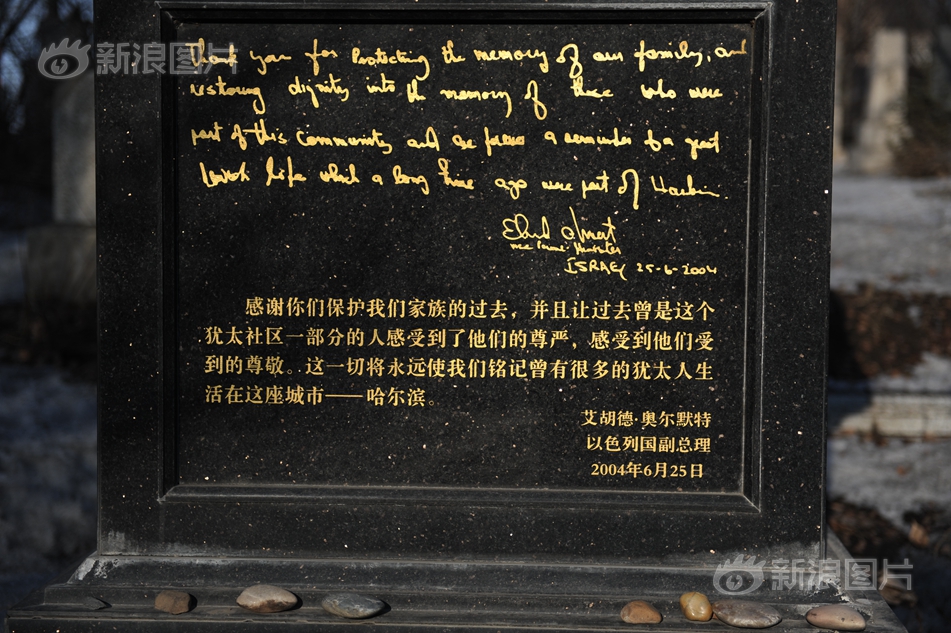 新浪图片
Thank you for Protecting the memory of our family, and
restoring dignity into the memory of those who were
part of this community and as forever a reminder to a great
Jewish life which a long time ago were part of Harbin.
Ehud Olmert
vice Prime Minister
ISRAEL 25-6-2004
感谢你们保护我们家族的过去，并且让过去曾是这个
犹太社区一部分的人感受到了他们的尊严，感受到他们受
到的尊敬。这一切将永远使我们铭记曾有很多的犹太人生
活在这座城市——哈尔滨。
艾胡德·奥尔默特
以色列国副总理
2004年6月25日
新浪图片